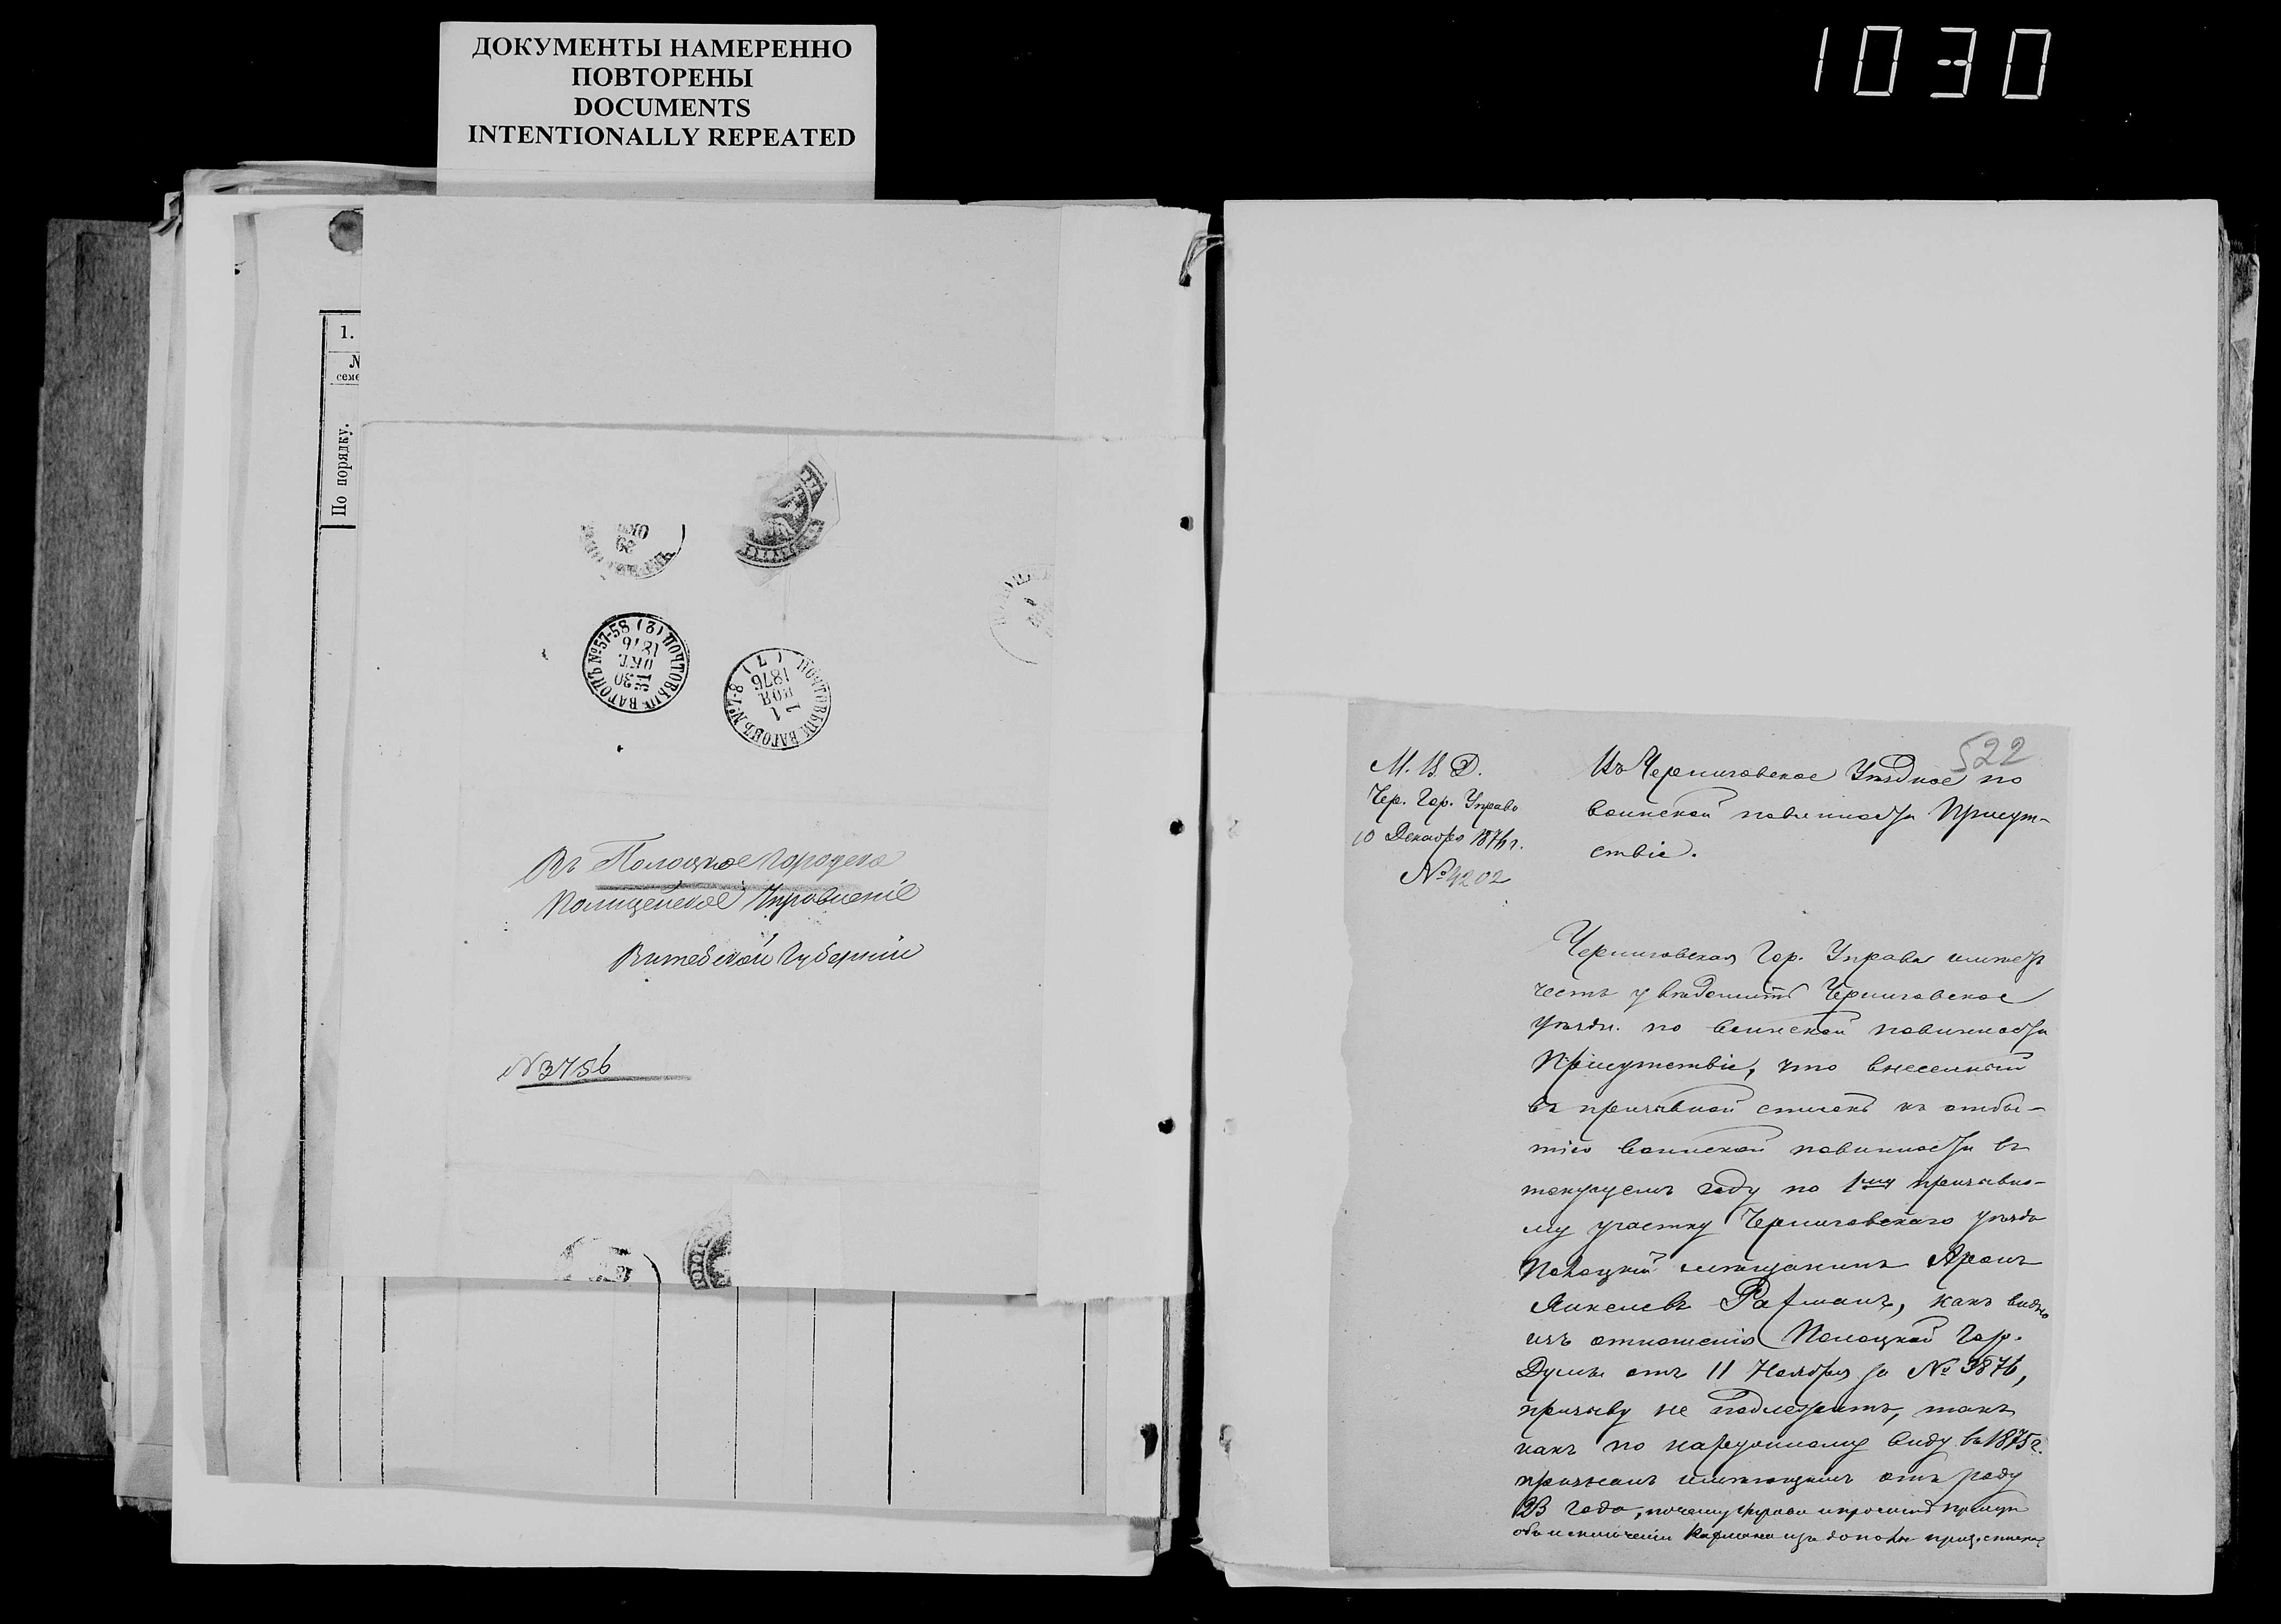 ДОКУМЕНТЫ НАМЕРЕННО
ПОВТОРЕНЫ
DOCUMENTS
INTENTIONALLY REPEATED
1030
1.
№
семе
По порядку.
ОКТ
29
ПОЧТОВЫЙ ВАГОНЪ №57-58 (2)
1876
ОКТ
30
31
ПОЧТОВЫЙ ВАГОНЪ №7-8 (7)
1876
НОЯ
1
Въ Полоцкое Городское
Полицейское Управленіе
Витебской Губерніи
№3756
522
М. В. Д.
Чер. Гор. Управа
10 Декабря 1876 г.
№4202
Въ Черниговское Уѣздное по
воинской повинности Присут-
ствіе.
Черниговская Гор. Управа имѣетъ
честь увѣдомить Черниговское
уѣздн. по воинской повинности
Присутствіе, что внесенный
въ призывной списокъ къ отбы-
тію воинской повинности въ
текущемъ году по 1му призывно-
му участку Черниговскаго уѣзда
Полоцкій мѣщанинъ Аронъ
какъ видно
изъ отношенія Полоцкой Гор.
Думы отъ 11 Ноября за № 3876,
призыву не подлежитъ, такъ
какъ по наружному виду въ 1875 г.
признанъ имѣющимъ отъ роду
23 года, почему Управа и проситъ
объ исключеніи изъ списка